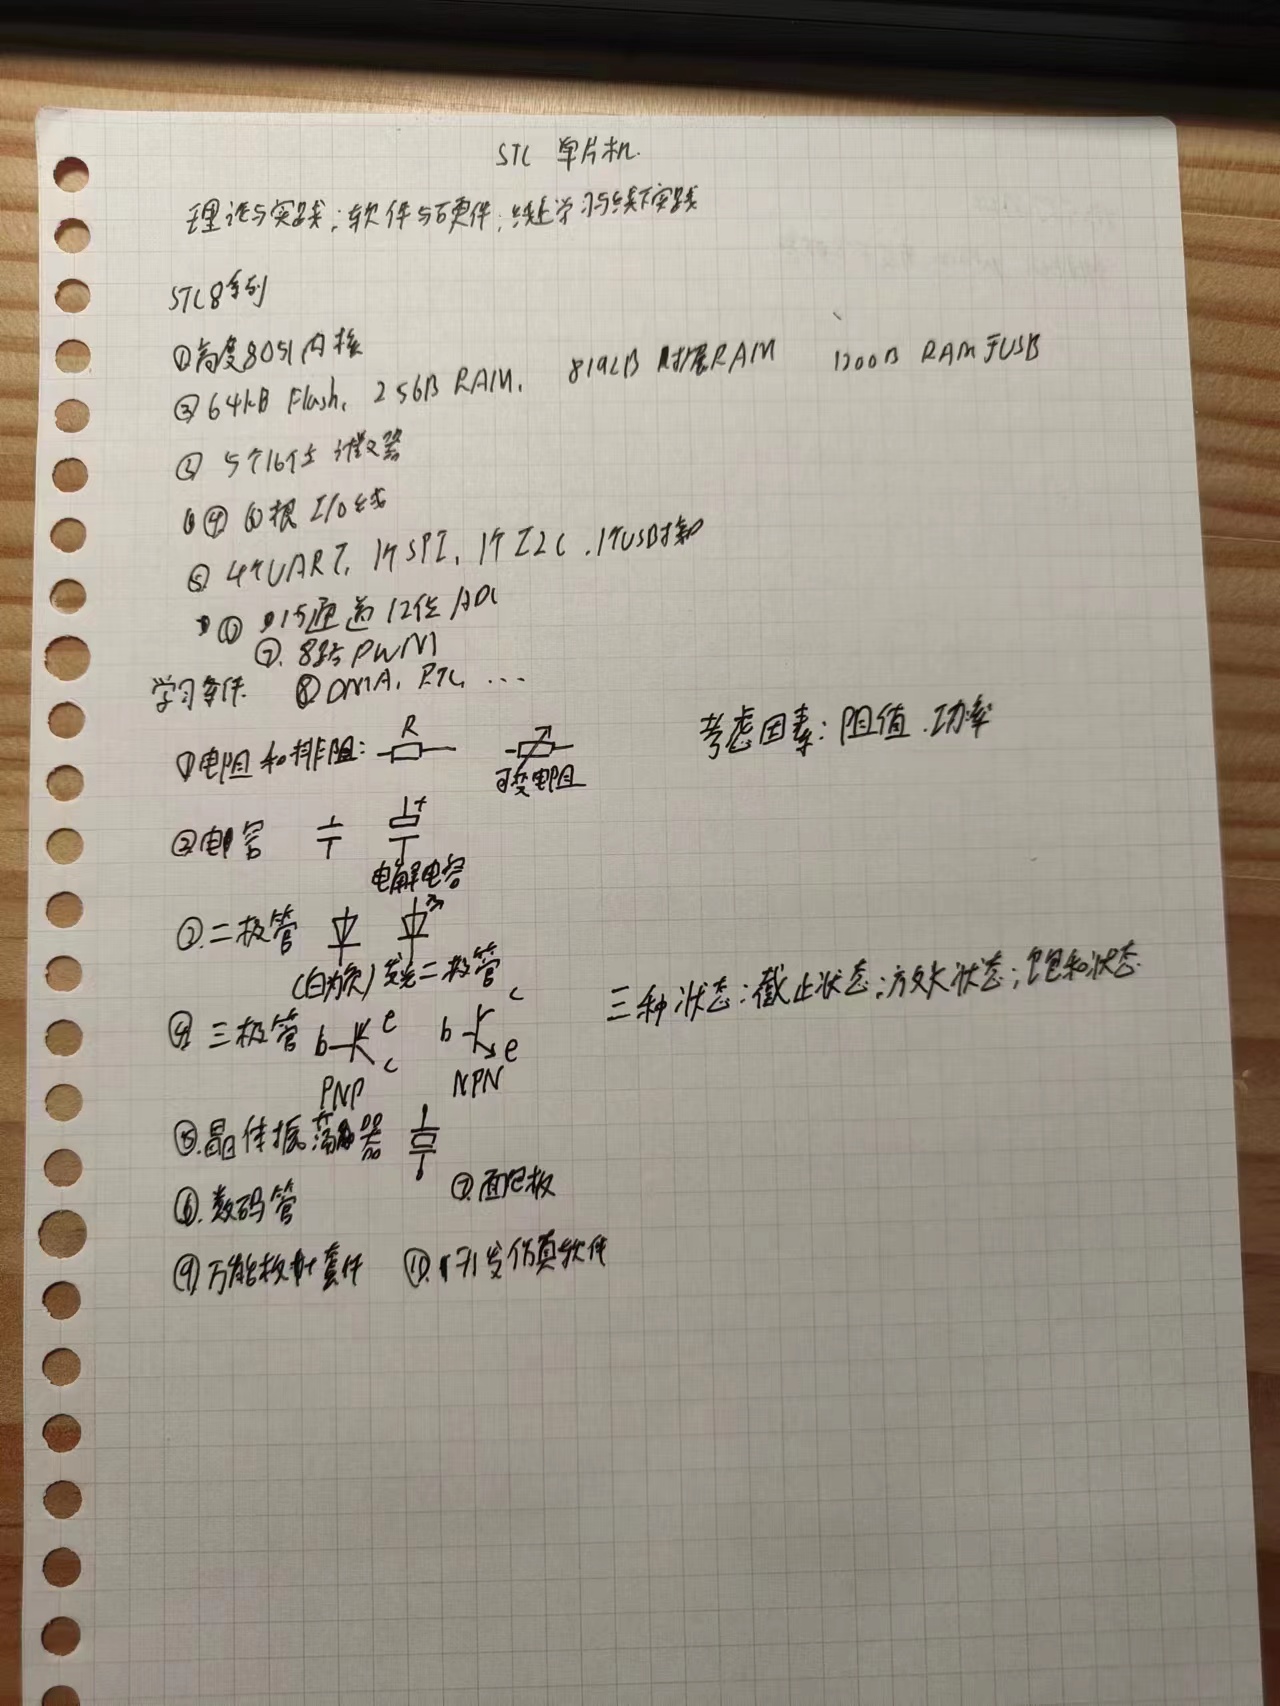 STC 单片机.
理论与实践; 软件与硬件; 线上学习与线下实践
STC8系列
①高度8051内核
② 64kB Flash, 256B RAM, 8192B 扩展RAM 1200B RAM于USB
③ 5个16位 计数器
④ 60根 I/O线
⑤ 4个UART, 1个SPI, 1个I2C, 1个USB接
⑥ 15通道12位ADC
⑦. 8路PWM
学习条件 ⑧DMA, RTC, ...
①电阻和排阻: R 考虑因素: 阻值.功率
可变电阻
②电容 +
电解电容
③.二极管
(白为负) 发光二极管
④ 三极管 b e c b c e 三种状态: 截止状态; 放大状态; 饱和状态
PNP NPN
⑤.晶体振荡器
⑥.数码管 ⑦.面包板
⑨万能板 套件 ⑩.开发仿真软件